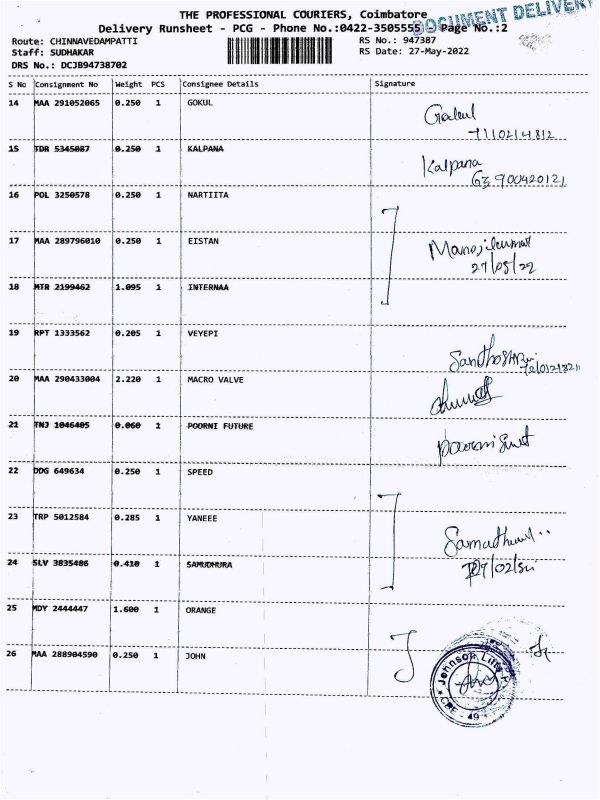 THE PROFESSIONAL COURIERS, Coimbatore
DOCUMENT DELIVERY
Delivery Runsheet - PCG - Phone No.:0422-3505555 - Page No.:2
Route: CHINNAVEDAMPATTI RS No.: 947387
Staff: SUDHAKAR RS Date: 27-May-2022
DRS No.: DCJB94738702
S No Consignment No Weight PCS Consignee Details Signature
14 MAA 291052065 0.250 1 GOKUL Gokul
7110214812
15 TDR 5345087 0.250 1 KALPANA Kalpana
63 900420121
16 POL 3250578 0.250 1 NARTIITA
17 MAA 289796010 0.250 1 EISTAN Manojkumar
27/05/22
18 MTR 2199462 1.095 1 INTERNAA
19 RPT 1333562 0.205 1 VEYEPI
20 MAA 290433004 2.220 1 MACRO VALVE
21 TNJ 1046405 0.060 1 POORNI FUTURE
22 DDG 649634 0.250 1 SPEED
23 TRP 5012584 0.285 1 YANEEE
24 SLV 3835486 0.410 1 SAMUDHURA
25 MDY 2444447 1.600 1 ORANGE
26 MAA 288904590 0.250 1 JOHN
Johnson
CBE - 49